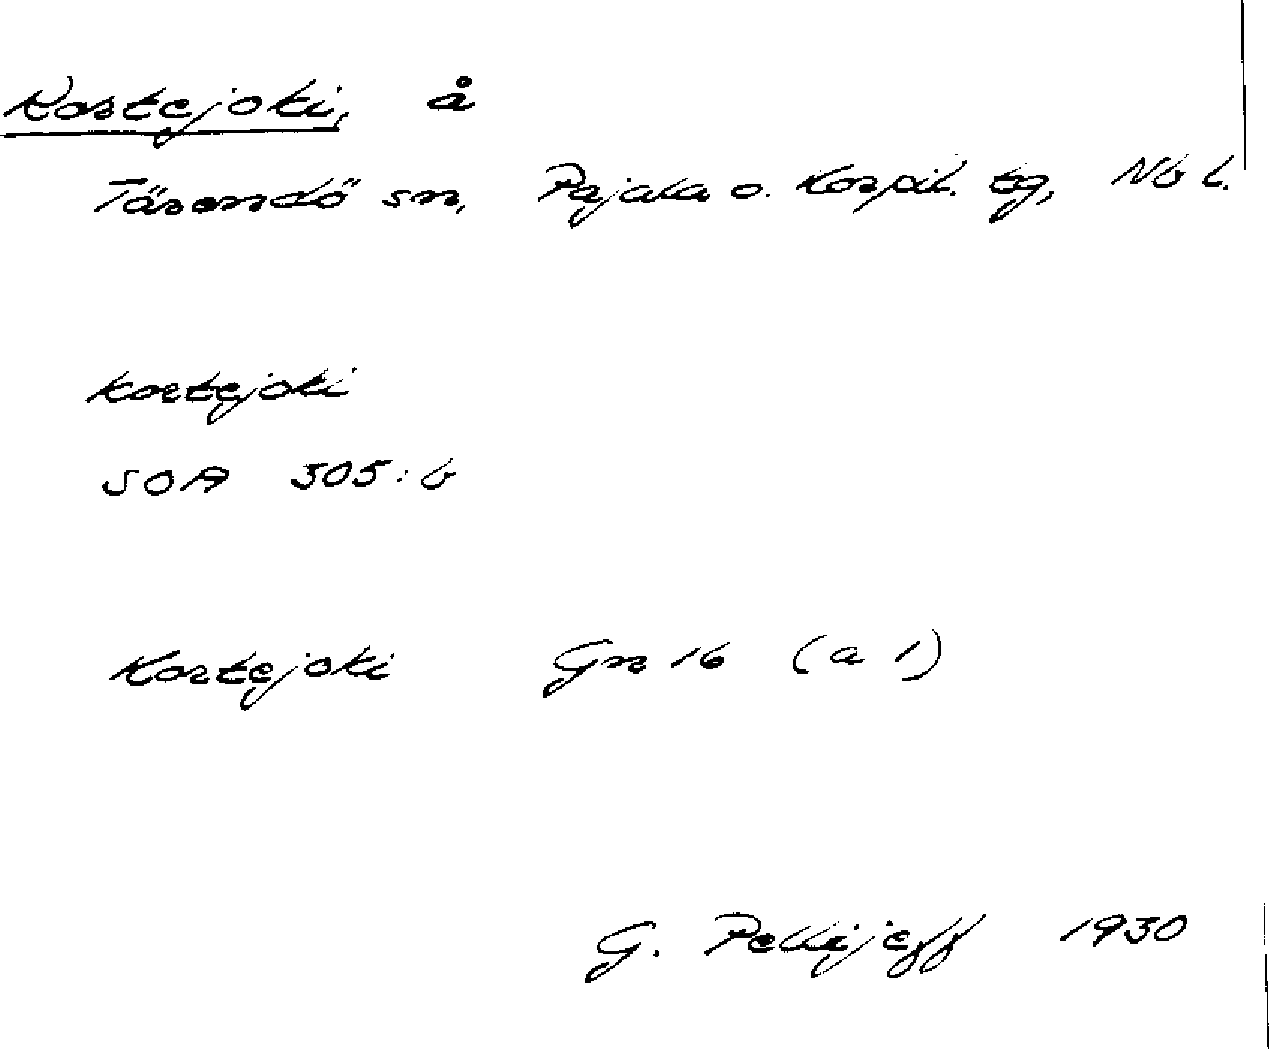 Kortejoki, å
Tärendö sn, Pajala o. Korpil. tg, Nb l.
kortejoki
SOA 305:6
Kortejoki Gn 16 (a 1)
G. Pellijeff 1930